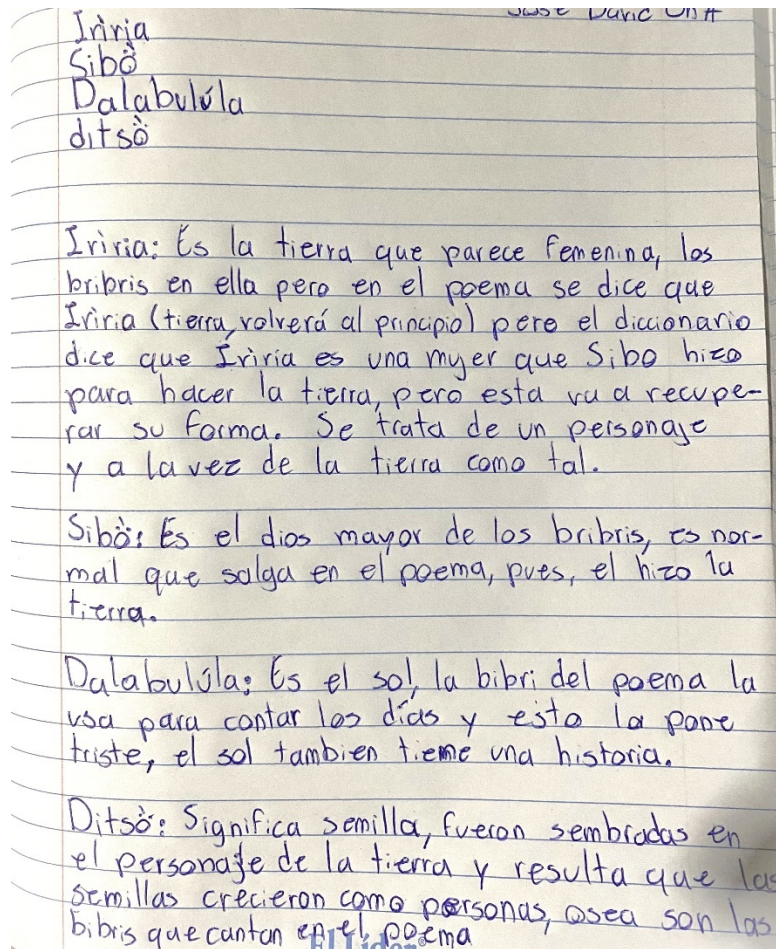 Iriria
Sibö̀
Dalabulúla
ditsö̀
Iriria: Es la tierra que parece femenina, los
bribris en ella pero en el poema se dice que
Iriria (tierra, volverá al principio) pero el diccionario
dice que Iriria es una myer que Sibo hizo
para hacer la tierra, pero esta va a recupe-
rar su forma. Se trata de un personaje
y a la vez de la tierra como tal.
Sibö̀: Es el dios mayor de los bribris, es nor-
mal que salga en el poema, pues, el hizo la
tierra.
Dalabulúla: Es el sol, la bibri del poema la
usa para contar los días y esto la pone
triste, el sol tambien tieme una historia.
Ditsö̀: Significa semilla, fueron sembradas en
el personaje de la tierra y resulta que las
semillas crecieron como personas, osea son las
bibris que cantan en el poema